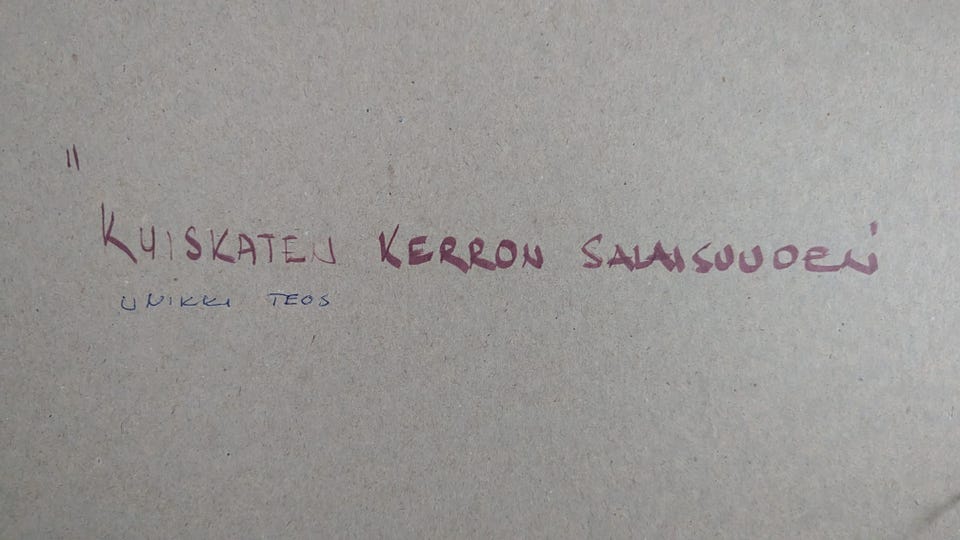 "KUISKATEN KERRON SALAISUUDEN'
UNIKKI TEOS